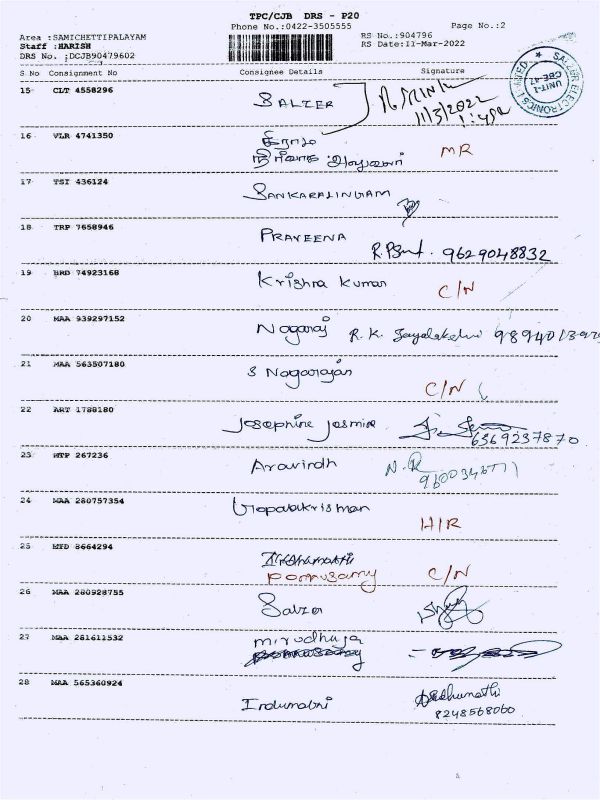 TPC/CJB DRS - P20
Phone No.:0422-3505555
Page No.:2
Area :SAMICHETTIPALAYAM
RS No.:904796
Staff :HARISH
RS Date:11-Mar-2022
DRS No. :DCJB90479602
S No Consignment No Consignee Details Signature
SALZER ELECTRONICS LIMITED
UNIT-1
CBE-47
15 CLT 4558296 SALZER
11/3/2022
16 VLR 4741350
கிராம
நிர்வாக அலுவலர் MR
17 TSI 436124 SANKARALINGAM
18 TRP 7658946 PRAVEENA
9629048832
19 BRD 74923168 Krishna Kumar C/N
20 MAA 939297152 Nagaraj R.K. Jayalakshmi
21 MAA 563507180 S Nagarajan
C/N
22 ART 1788180 Josephine Jasmine
6369237870
23 HTP 267236 Aravindh N.R
24 MAA 280757354 Gopalakrishnan
H/R
25 MTD 8664294
ponnusamy C/N
26 MAA 280928755 Salzer
27 MAA 281611532 mirudhuja
28 MAA 565360924 Indumathi
8248568060